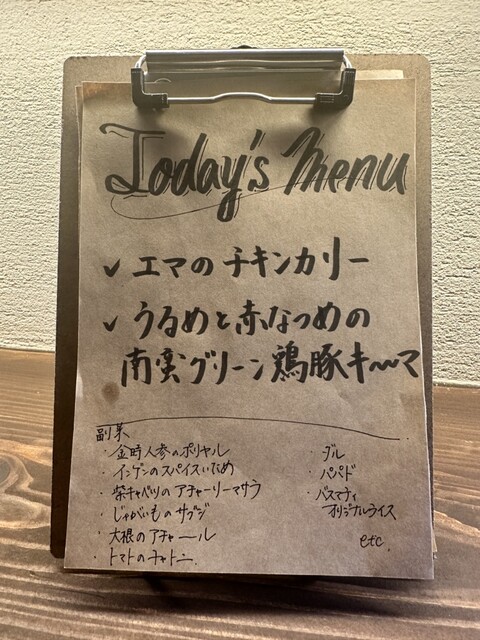 Today's Menu
✓ エマのチキンカリー
✓ うるめと赤なつめの
南蛮グリーン鶏豚キ〜マ
副菜
・金時人参のポリヤル
・インゲンのスパイスいため
・紫キャベツのアチャーリーマサラ
・じゃがいものサブジ
・大根のアチャール
・トマトのチャトニー
・ダル
・パパド
・バスマティ
オリジナルライス
etc.